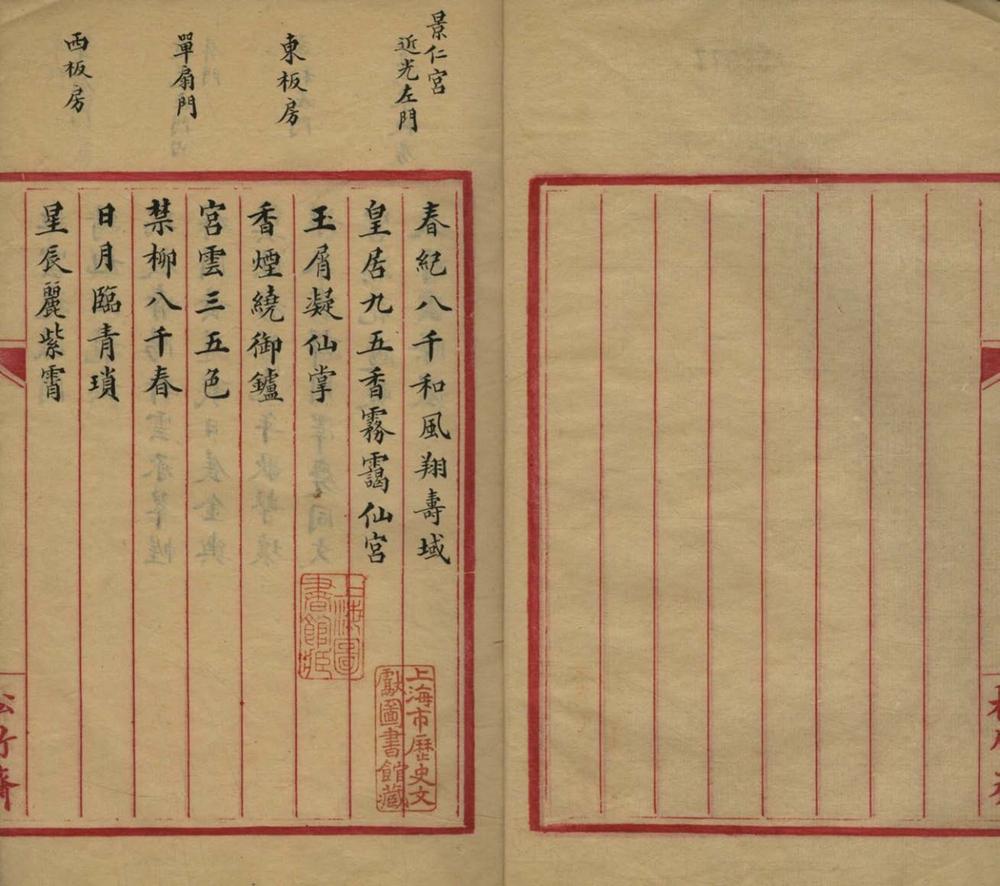 景仁宮
近光左門
東板房
單扇門
西板房
春紀八千和風翔壽域
皇居九五香霧靄仙宮
玉屑凝仙掌
香煙繞御鑪
宮雲三五色
禁柳八千春
日月臨青瑣
星辰麗紫霄
上海圖
書館藏
上海市歷史文
獻圖書館藏
松竹齋